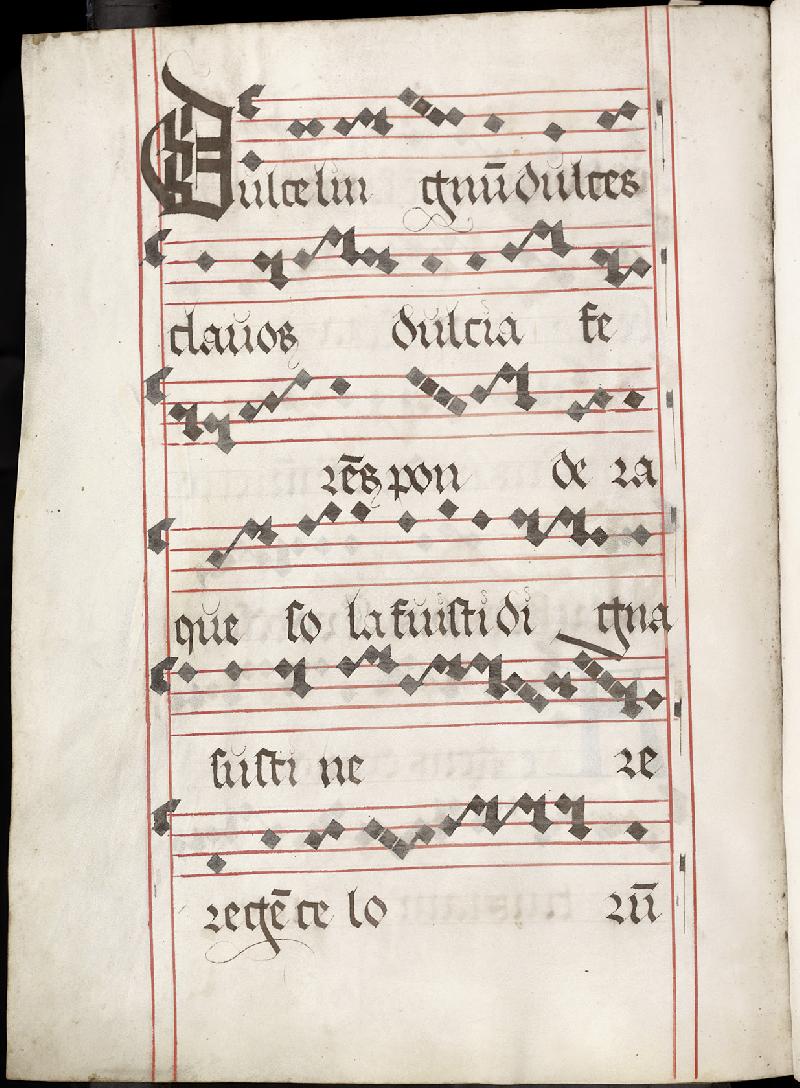 Dulce lin gnū dulces
clauos dulcia fe
rēs pon de ra
que so la fuisti di gna
susti ne re
regē ce lo rū